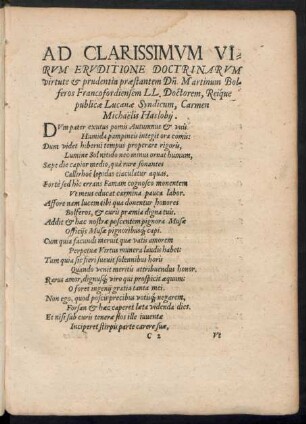 AD CLARISSIMVM VI
RVM ERVDITIONE DOCTRINARVM
virtute & prudentia præstantem Dn̄. Martinum Bol
feros Francofordiensem LL. Doctorem, Reique
publicæ Lucanæ Syndicum, Carmen
Michaëlis Haslobij.
DVm pater exutus pomis Autumnus & vuis
Humida pampineis integit ora comis:
Dum videt hiberni tempus properare rigoris,
Lumine Sol nitido nec minus ornat humum,
Sæpe die capior medio, quà rure sonantes
Callirhoë lapidis eiaculatur aquas.
Fortè sed hic errans Famam cognosco monentem
Vt meus educat carmina pauca labor.
Affore nam lucem tibi qua donentur honores
Bolferos, & curis præmia digna tuis.
Addit & hæc nostræ poscentem pignora Musæ
Officijs Musæ pignoribusque capi.
Cum quia facundi meruit quæ vatis amorem
Perpetua Virtus munera laudis habet:
Tum quia sic fieri sueuit solennibus horis
Quando venit meritis attribuendus honor.
Rarus amor, dignusque viro qui prospicit æquum:
O foret ingenij gratia tanta mei.
Non ego, quod poscis precibus votisque negarem,
Forsan & hæc caperet læta videnda dies.
Et nisi sub curis teneræ flos ille iuuentæ
Inciperet stirpis parte carere suæ,
C 2 Vt